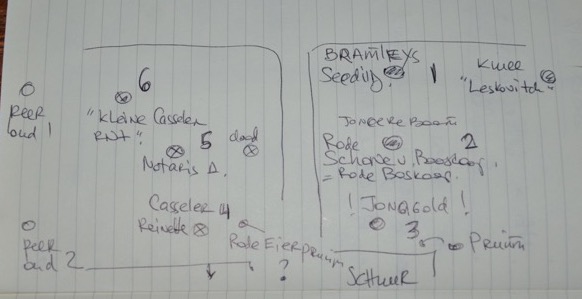 6
"Kleine Casseler
RNT".
Peer
oud 1
5 dood
Notaris A.
Casseler 4
Reinette
Rode Eierpruim
Peer
oud 2
?
BRAMLEYS
Seedling. 1
Kwee
"Leskovitch".
Jongere Boom
Rode 2
Schone v. Booskoop.
= Rode Boskoop.
! JONAGOLD !
3
Pruim
SCHUUR